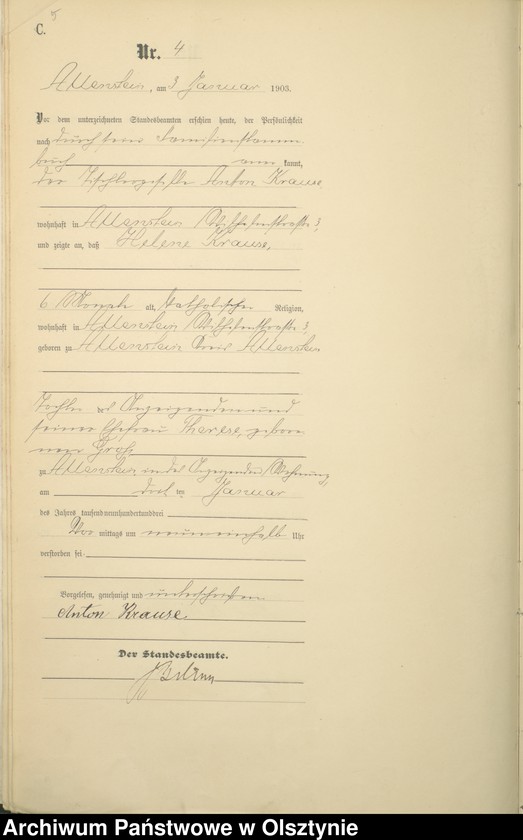 5
C.
Nr. 4
Allenstein, am 3 Januar 1903.
Vor dem unterzeichneten Standesbeamten erschien heute, der Persönlichkeit
nach durch sein Familienstamm
buch anerkannt,
der Tischlergeselle Anton Krause
wohnhaft in Allenstein 3,
und zeigte an, daß Helene Krause,
6 Monate alt, katholischer Religion,
wohnhaft in Allenstein 3,
geboren zu Allenstein Kreis Allenstein
Tochter des Anzeigenden und
seiner Ehefrau Therese, gebore
nen
zu Allenstein in des Anzeigenden Wohnung,
am drei ten Januar
des Jahres tausend neunhundertunddrei
Vor mittags um neuneinhalb Uhr
verstorben sei.
Vorgelesen, genehmigt und unterschrieben
Anton Krause.
Der Standesbeamte.
Archiwum Państwowe w Olsztynie